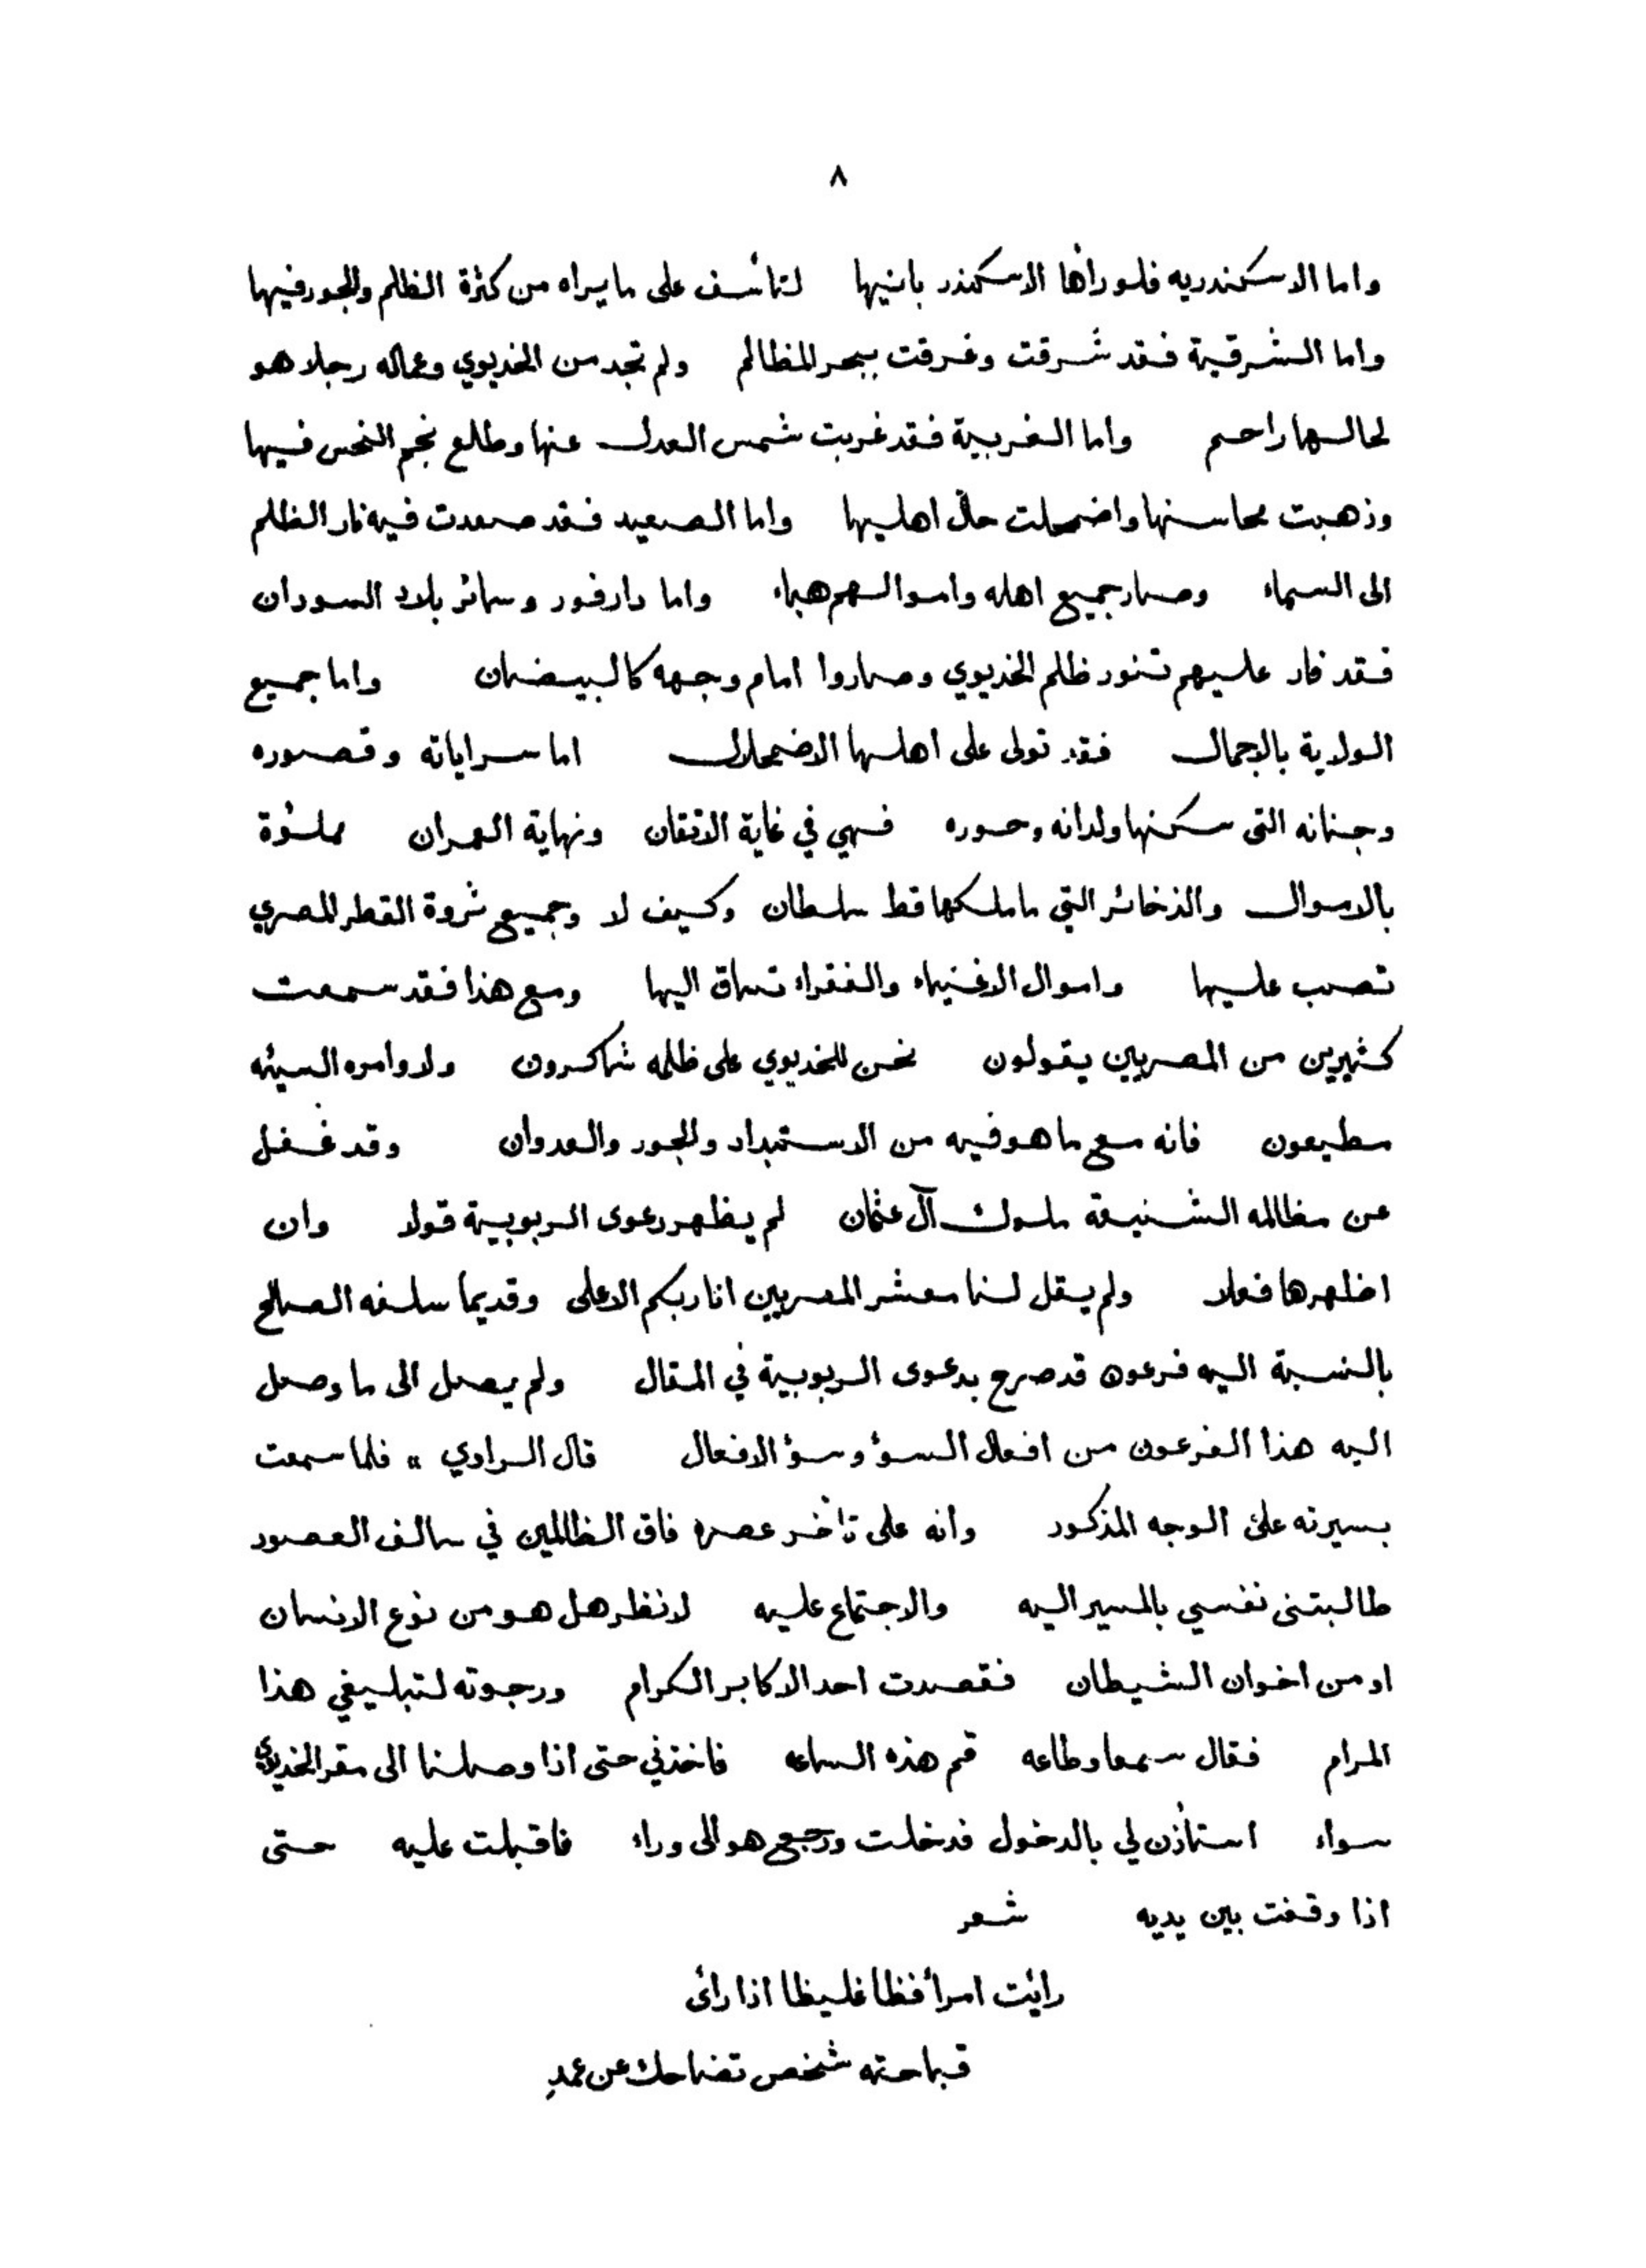 ٨
واما الاسكندريه فلو رأها الاسكندر بانيها لتأسف على مايراه من كثرة الظلم والجور فيها
واما الشرقية فقد شرقت وغرقت ببحر المظالم ولم تجد من الخديوي وعماله رجلا هو
لحالها راحم واما الغربية فقد غربت شمس العدل عنها وطلع نجم النحس فيها
وذهبت محاسنها واضمحلت حال اهليها واما الصعيد فقد صعدت فيه نار الظلم
الى السماء وصار جميع اهله واموالهم هباء واما دارفور وسائر بلاد السودان
فقد فار عليهم تنور ظلم الخديوي وصاروا امام وجهه كالبيضان واما جميع
الولاية بالاجمال فقد تولى على اهلها الاضمحلال اما سراياته وقصوره
وجنانه التى سكنها ولدانه وحوره فهي في غاية الاتقان ونهاية العمران مملؤة
بالاموال والذخائر التي ماملكها قط سلطان وكيف لا وجميع ثروة القطر المصري
تصب عليها واموال الاغنياء والفقراء تساق اليها ومع هذا فقد سمعت
كثيرين من المصريين يقولون نحن للخديوي على ظلمه شاكرون ولاوامره السيئه
مطيعون فانه مع ما هو فيه من الاستبداد والجور والعدوان وقد غفل
عن مظالمه الشنيعة ملوك آل عثمان لم يظهر دعوى الربوبية قولا وان
اظهرها فعلا ولم يقل لنا معشر المصريين انا ربكم الاعلى وقديما سلفه الصالح
بالنسبة اليه فرعون قد صرح بدعوى الربوبية في المقال ولم يصل الى ما وصل
اليه هذا الفرعون من افعال السؤ وسؤ الافعال قال الراوي " فلما سمعت
بسيرته على الوجه المذكور وانه على تأخر عصره فاق الظالمين في سالف العصور
طالبتنى نفسي بالمسير اليه والاجتماع عليه لانظر هل هو من نوع الانسان
او من اخوان الشيطان فقصدت احد الاكابر الكرام ورجوته لتبليغي هذا
المرام فقال سمعا وطاعه قم هذه الساعه فاخذني حتى اذا وصلنا الى مقر الخديوي
سواء استأذن لي بالدخول فدخلت ورجع هو الى وراء فاقبلت عليه حتى
اذا وقفت بين يديه شعر
رائت امرأ فظا غليظا اذا رأى
قباحته شخص تضاحك عن عمدِ